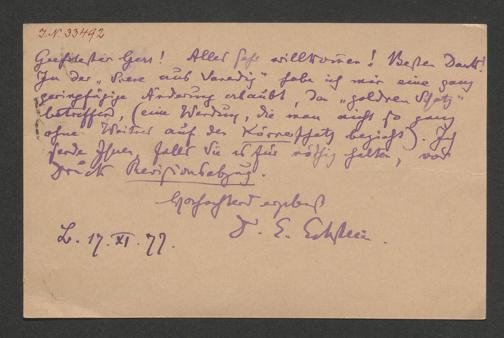 J.N. 33492
Geehrter Herr! Alles sehr willkommen! Besten Dank!
In der „ aus Venedig“ habe ich mir eine ganz
geringfügige Änderung erlaubt, den „goldnen Schatz“
betreffend, (eine Wendung, die man nicht so ganz
ohne Weitres auf den Körnerschatz bezieht). Ich
sende Ihnen, falls Sie es für nöthig halten, vor
Druck Revisionsabzug.
Hochachtend ergebenst
Dr. E. Eckstein.
L. 17. XI. 77.